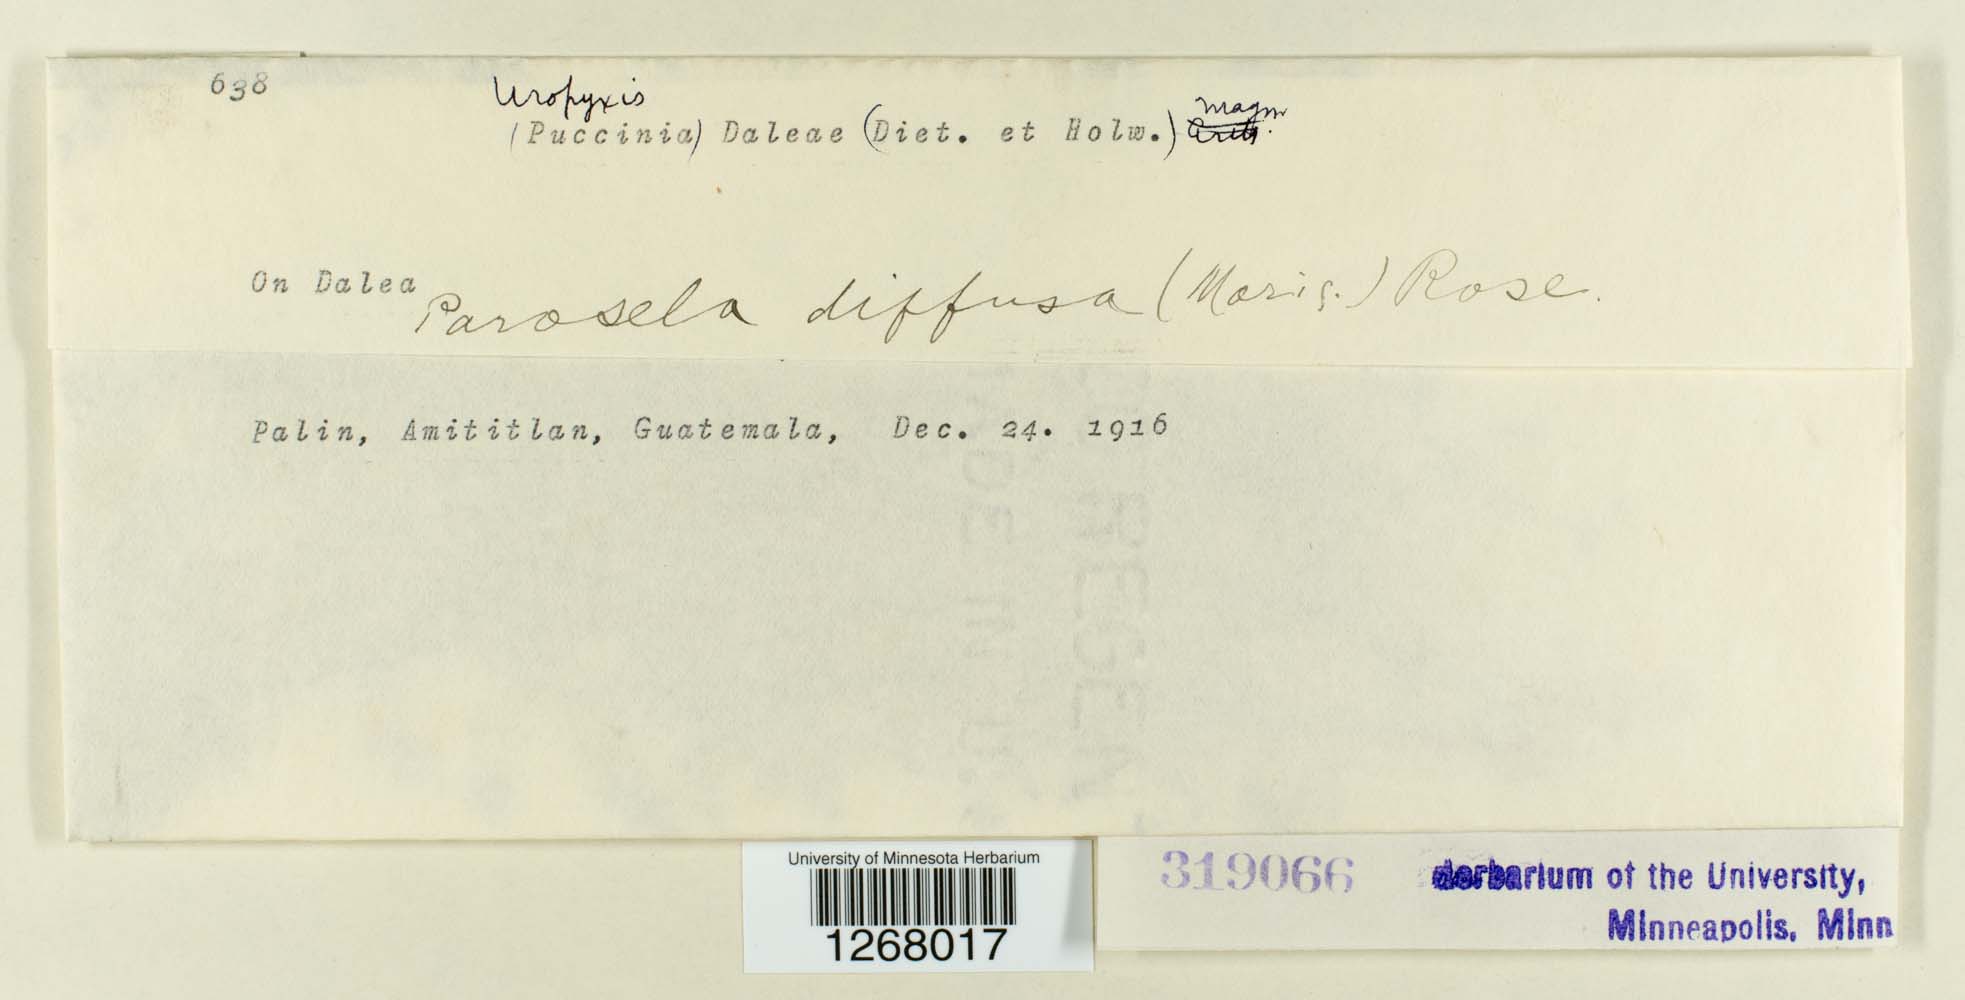 638
Uropyxis
(Puccinia) Daleae (Diet. et Holw.) Magn.
On Dalea
Parosela diffusa (Moric.) Rose.
Palin, Amititlan, Guatemala, Dec. 24. 1916
University of Minnesota Herbarium
1268017
319066
Herbarium of the University,
Minneapolis, Minn